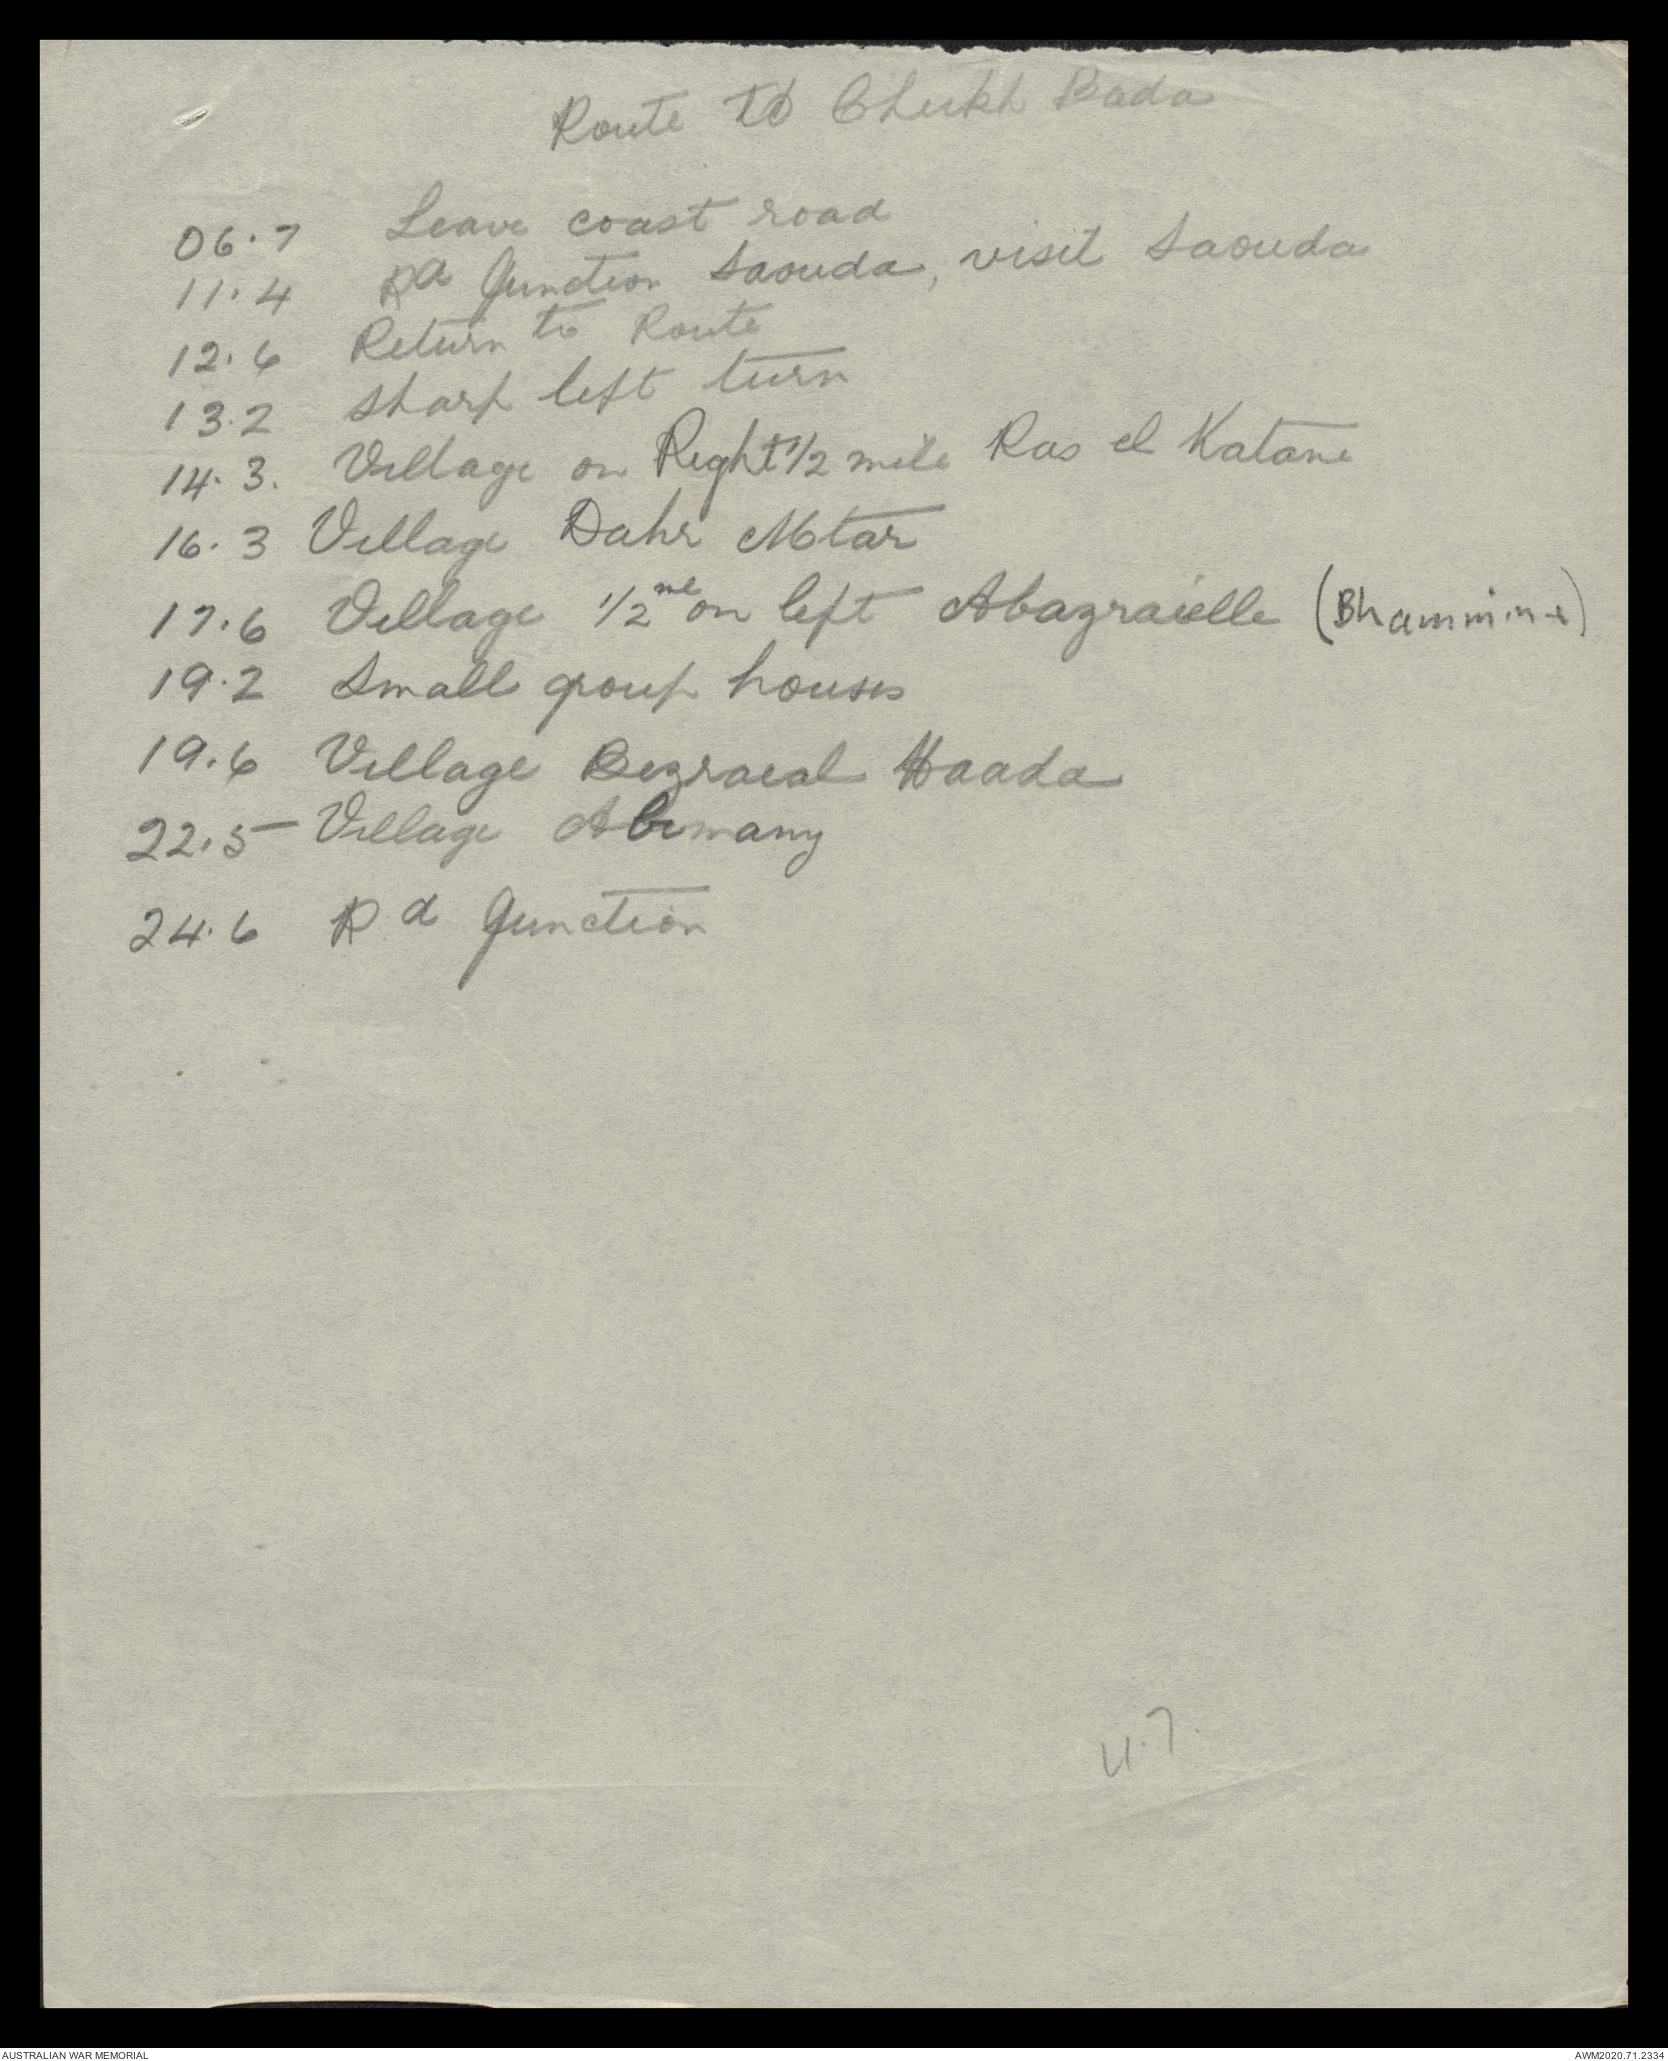 Route to Cheikh Bada
06.7 Leave coast road
11.4 Rd Junction Saouda, visit Saouda
12.6 Return to Route
13.2 Sharp left turn
14.3. Village on Right 1/2 mile Ras el Katane
16.3 Village Dahr Mtar
17.6 Village 1/2 ml on left Abazraielle (Bhammine)
19.2 Small group houses
19.6 Village Bezraeal Haada
22.5 Village Abimany
24.6 Rd Junction
4.7.
AUSTRALIAN WAR MEMORIAL
AWM2020.71.2334